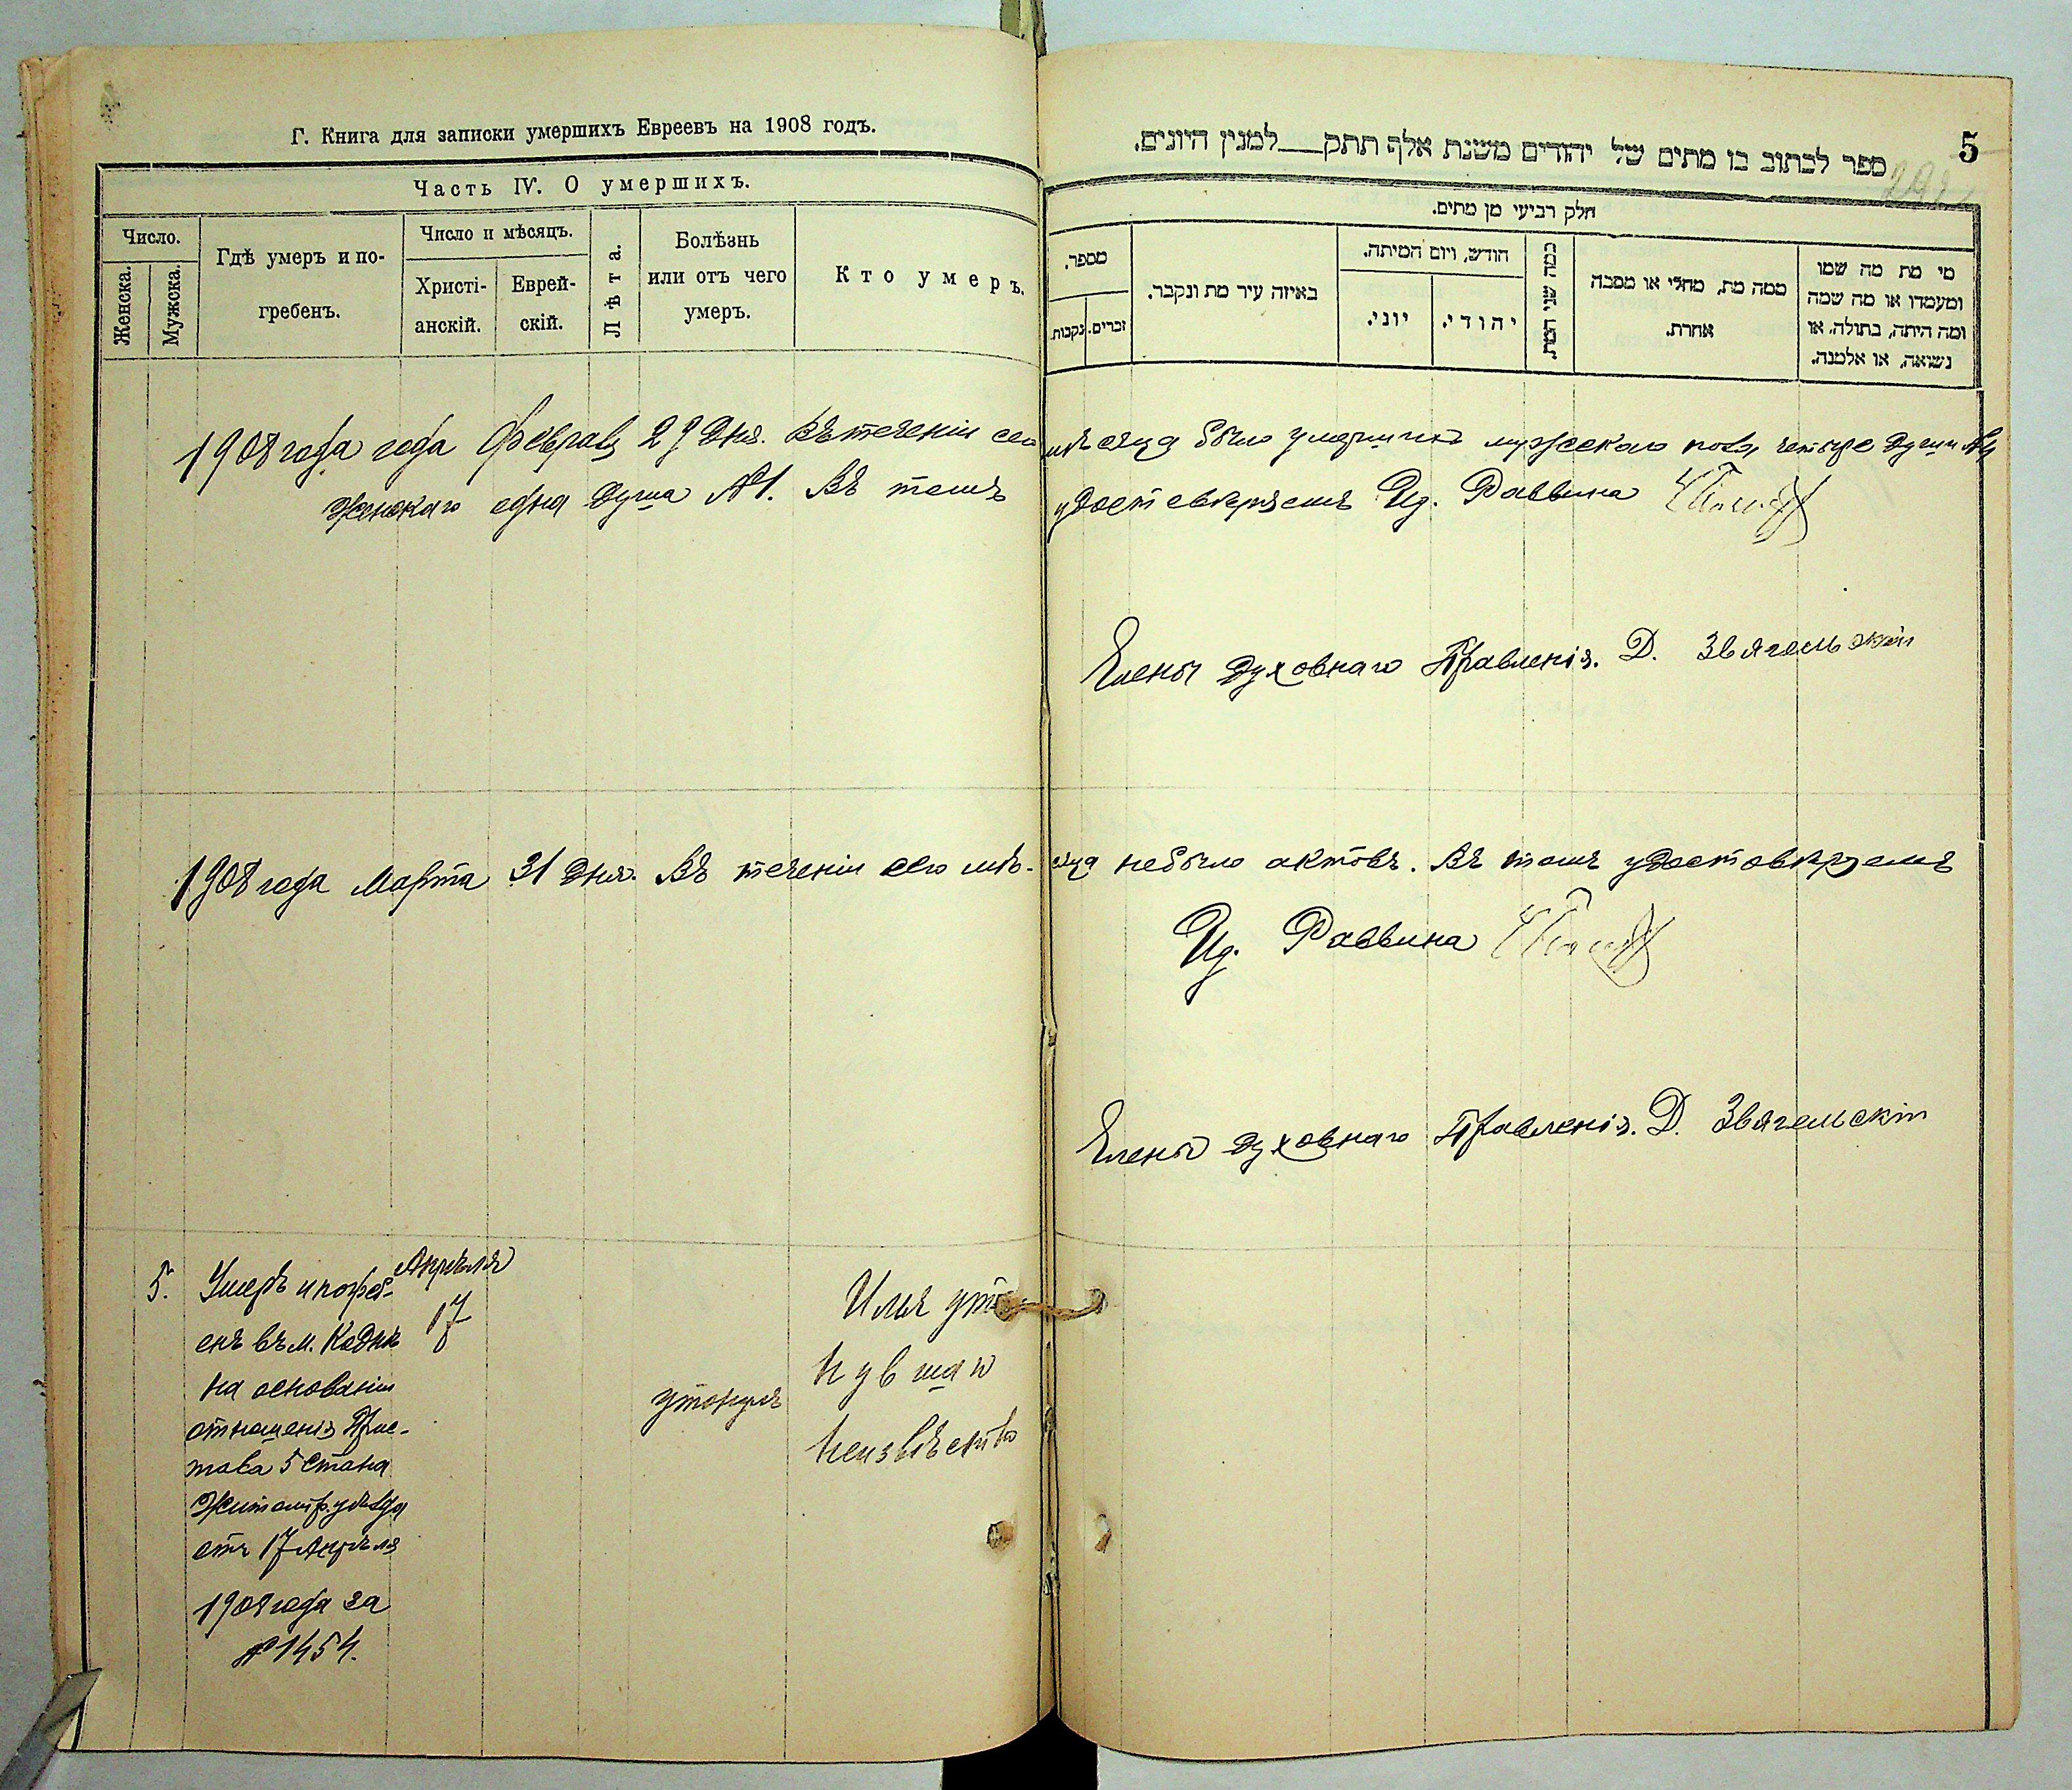 Г. Книга для записки умершихъ Евреевъ на 1908 годъ.
Часть IV. О умершихъ.
Число.
Женска.
Мужска.
Гдѣ умеръ и по-
гребенъ.
Число и мѣсяцъ.
Христі-
анскій.
Еврей-
скій.
Лѣта.
Болѣзнь
или отъ чего
умеръ.
Кто умеръ.
5
ספר לכתוב בו מתים של יהודים משנת אלף תתק__למנין היונים.
חלק רביעי מן מתים.
מספר.
נקבות.
זכרים.
באיזה עיר מת ונקבר.
חודש, ויום המיתה.
יוני.
יהודי.
כמה שני המת.
ממה מת, מחלי או מסבה
אחרת.
מי מת מה שמו
ומעמדו או מה שמה
ומה היתה, בתולה, או
נשואה, או אלמנה.
1908 года года Февраля 29 дня. Въ теченіи сего мѣсяца было умершихъ мужескаго пола четыре души №4
женскаго одна душа №1. Въ томъ удостовѣряемъ Ид. Раввина
Члены Духовнаго Правленія. Д. Звягельскій
1908 года Марта 31 дня. Въ теченіи сего мѣ-сяца небыло актовъ. Въ томъ удостовѣряемъ
Ид. Раввина
Члены Духовнаго Правленія. Д. Звягельскій
5. Умеръ и погреб-
енъ въ м. Коднѣ
на основаніи
отношенія Прис-
тава 5 Стана
Житомір. уѣзда
отъ 17 Апрѣля
1908 года за
№ 1454.
Апрѣля
17
утонулъ
Илья
неизвѣстно